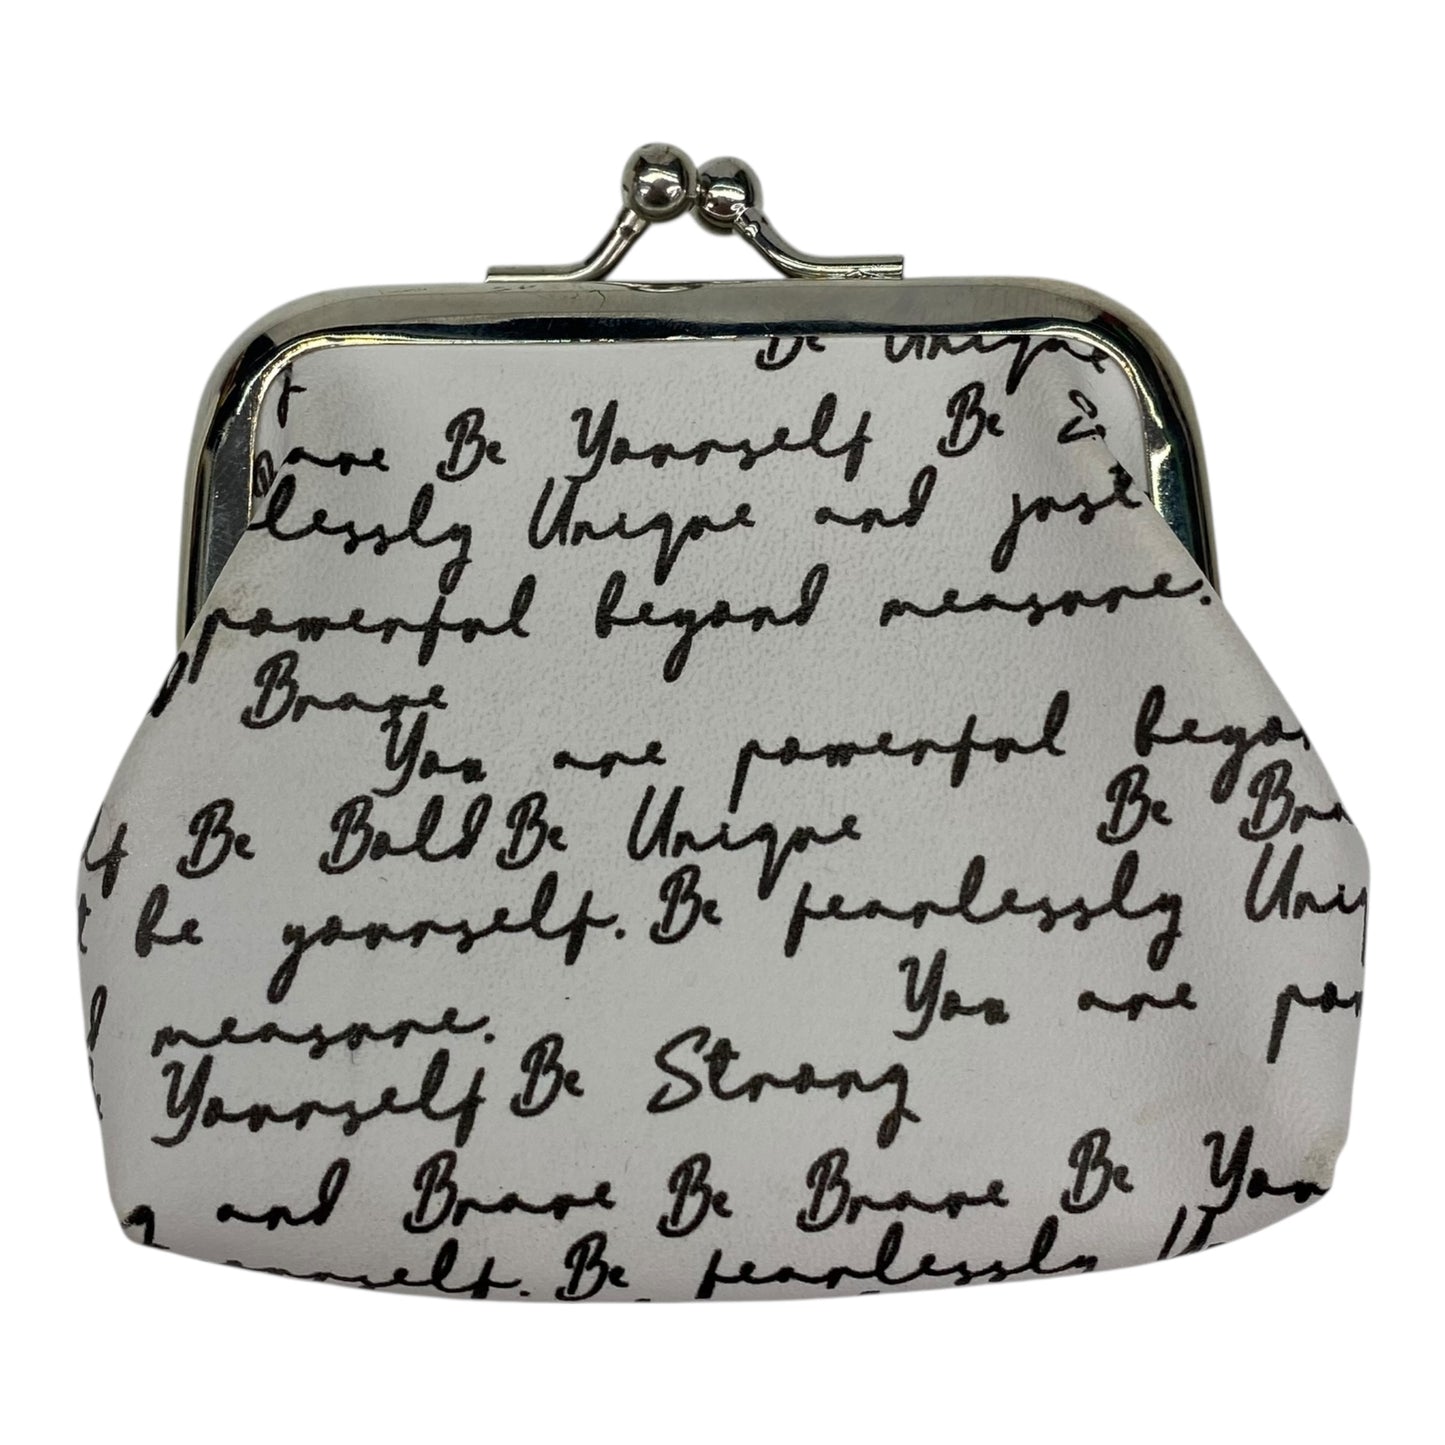 Be Unique
Be Yourself Be
lessly Unique and just
powerful beyond measure.
Brave
You are powerful beyo
lf Be Bold Be Unique Be Bra
t be yourself. Be fearlessly Uniq
d measure. You are po
Yourself Be Strong
g and Brave Be Brave Be You
yourself. Be fearlessly U